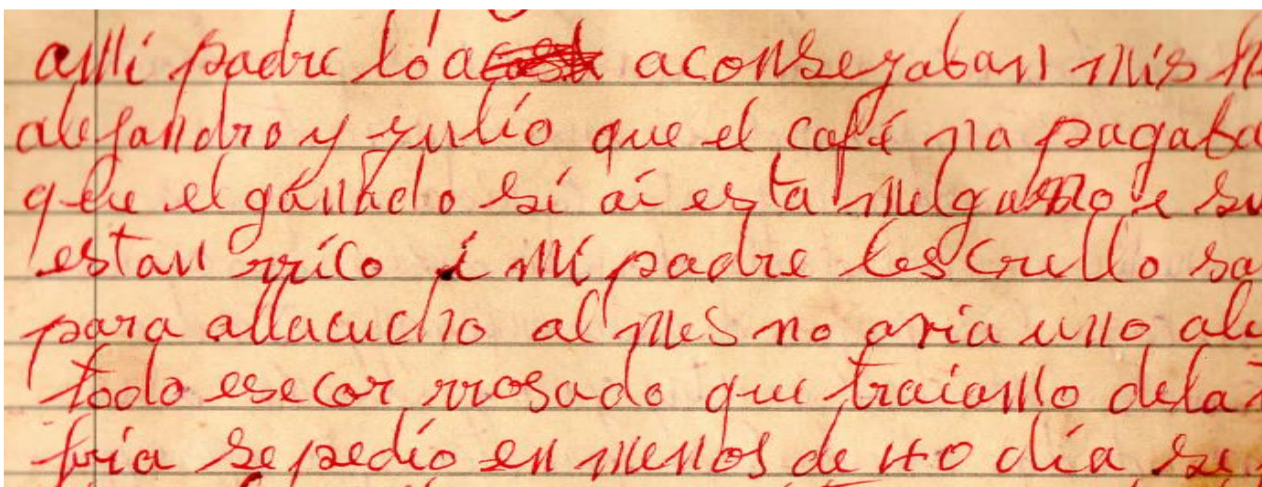 a mi padre lo a aconseyaban mis
alejandro y yulio que el café no pagaba
que el ganado si ai esta melga
estan rrico i mi padre les crello
para allacucho al mes no avia uno
todo ese cor rrosado que traiamo dela
fria se pedio en menos de 40 dia se